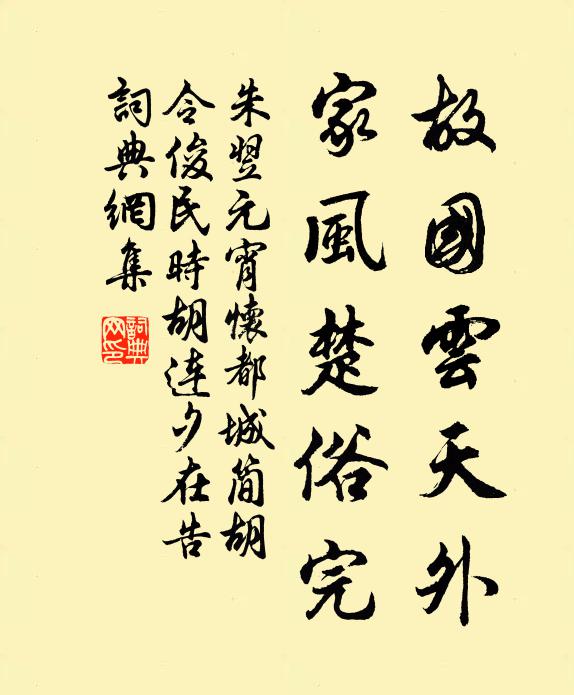 故國雲天外
家風楚俗完
朱翌元宵懷都城简胡
令俊民時胡连夕在告
詞典網集
詞典
网印